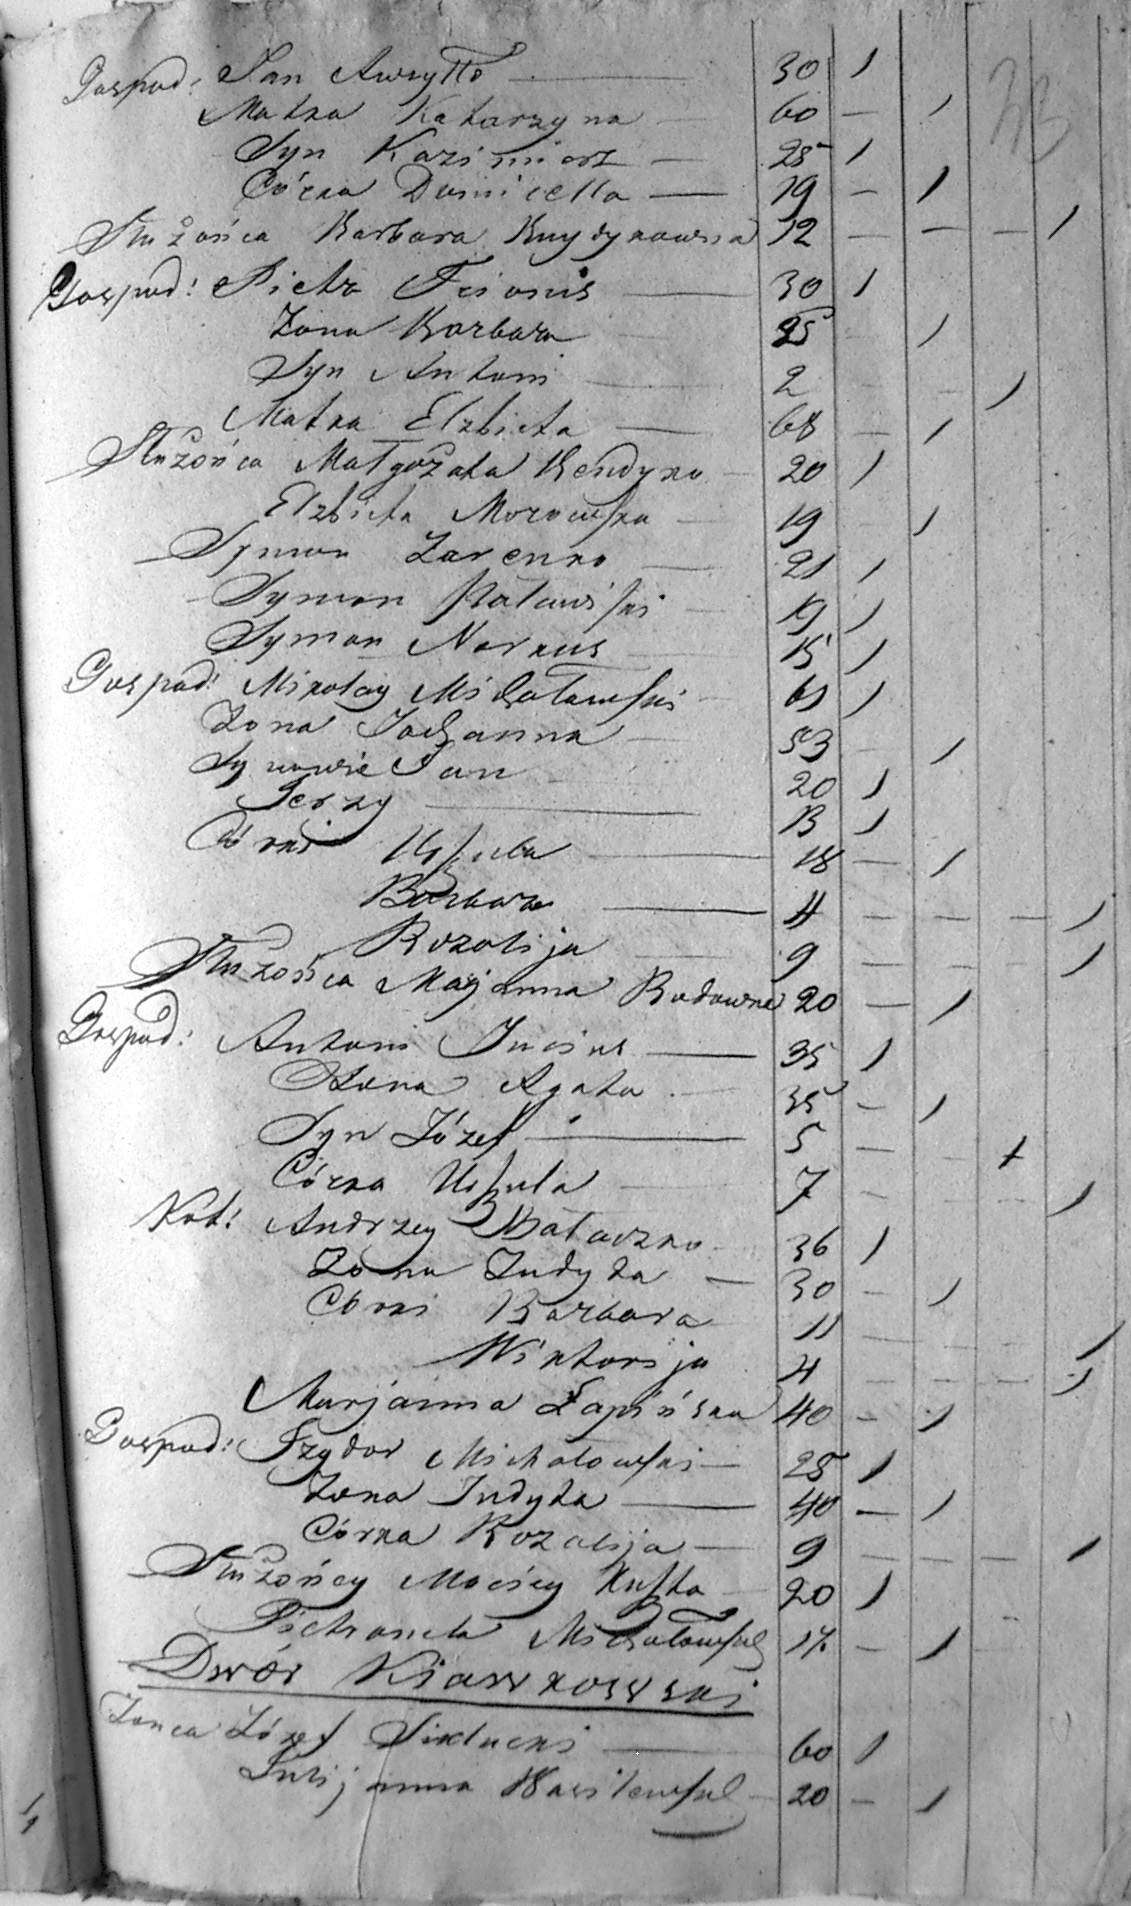 33
Gospod: Jan Awryłło — 30 1
Matka Katarzyna — 60 — 1
Syn Kazimierz — 25 1
Córka Dominella — 19 — 1
Słuzońca Barbara 12 — — — 1
Gospod: Piotr — 30 1
Zona Barbara 25 — 1
Syn Antoni — 2 — — 1
Matka Elzbieta — 68 — 1
Słuzońca Małgozata Rendyko — 20 1
Elzbieta Morowska — 19 1
Symon Zarenko — 21 1
Symon — 19 1
Symon Norkus — 15 1
Gospod: Mikołay Michałowski — 61 1
Zona Jochanna — 53 — 1
Synowie Jan — 20 1
Jerzy — 13 1
Córki Urszula — 18 — 1
Barbara — 4 — — — 1
Rozalija — 9 — — — 1
Słuzońca Maryanna Budowna 20 — 1
Gospod: Antoni Jucius — 35 1
Zona Agata — 35 — 1
Syn Józef — 5 — — 1
Córka Urszula — 7 — — — 1
Kąt: Andrzey — 36 1
Zona Judyta — 30 — 1
Córki Barbara 11 — — — 1
Wiktorija 4 — — — 1
Marjanna Łapińska 40 — 1
Gospod: Izydor Michałowski — 25 1
Zona Judyta — 40 — 1
Córka Rozalija — 9 — — — 1
Słuzońcy Maciey — 20 1
Pietronela 17 — 1
Dwór Kiarkowski
Józef — 60 1
Julijanna — 20 — 1